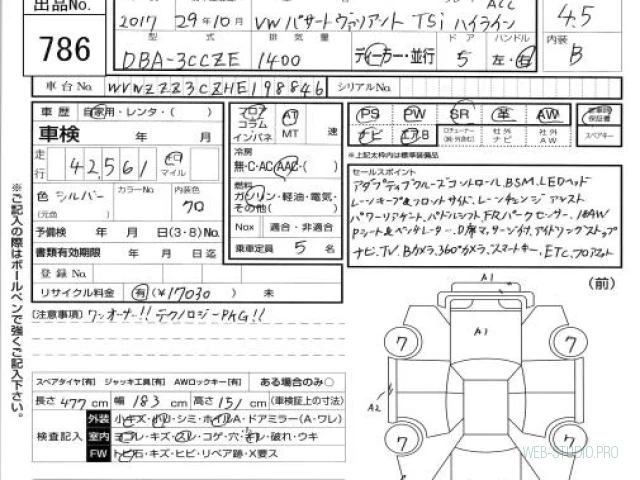 出品No.
786
2017 29年10月 VW パサートヴァリアント TSi ハイライン
4.5
型 式 排 気 量 ド ア ハンドル
内装
B
DBA-3CCZE 1400 ディーラー・並行 5 左・右
車台No. WVWZZZ3CZHE198846 シリアルNo.
車 歴 自家用・レンタ・( )
車検 年 月
走行 42,561 km マイル
色 シルバー カラーNo. 内装色
(元色 ) クロ
予備検 年 月 日(3・8)No.
書類有効期限 年 月 日迄
登 録 No.
リサイクル料金 有 (¥17030) 未
コラム AT
インパネ MT 速
冷房
無・C・AC・AAC・( )
燃料
ガソリン・軽油・電気・
その他( )
Nox 適合・非適合
乗車定員 5 名
PS PW SR 革 AW
ナビ エアB 社外ナビ 社外AW
保証書
スペアキー
※上記太枠内は標準装備品
セールスポイント
アダプティブクルーズコントロール.BSM.LEDヘッド
レーンキープ&フロントサイド.レーンチェンジアシスト
パワーリアゲート.パドルシフト.FRパークセンサー.18AW
Pシート&ベンチレーター.D席マッサージ付.アイドリングストップ
ナビ.TV.Bカメラ.360°カメラ.スマートキー.ETC.フロアマット
[注意事項] ワンオーナー!! テクノロジーPKG!!
(前)
A1
A1
7 7
A2
7 7
スペアタイヤ[有] ジャッキ工具[有] AWロックキー[有] ある場合のみ○
長さ 477 cm 幅 183 cm 高さ 151 cm (車検証上の寸法)
検査記入
外装 小キズ・凹・シミ・ホイルA・ドアミラー(A・ワレ)
室内 ヨゴレ・キズ・スレ・コゲ・穴・キレ・破れ・ウキ
FW トビ石・キズ・ヒビ・リペア跡・X要ス
※ご記入の際はボールペンで強くご記入下さい。
WEB-STUDIO.PRO